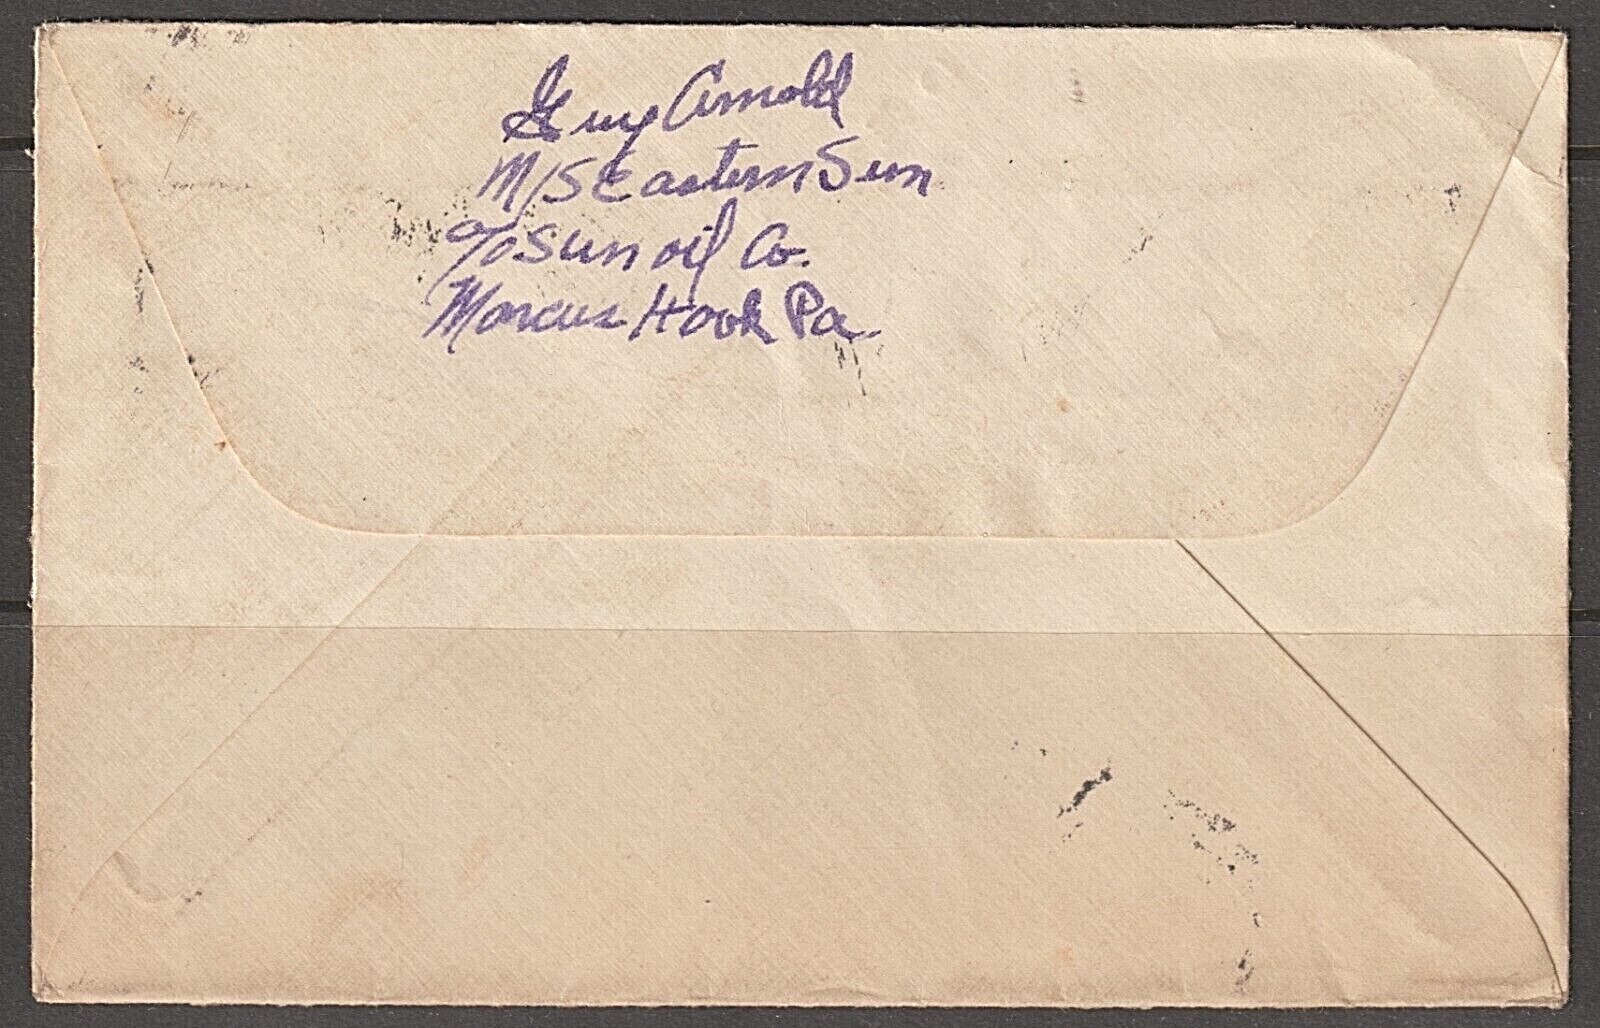 Guy Arnold
M/S Eastern Sun
c/o Sun Oil Co.
Marcus Hook Pa.